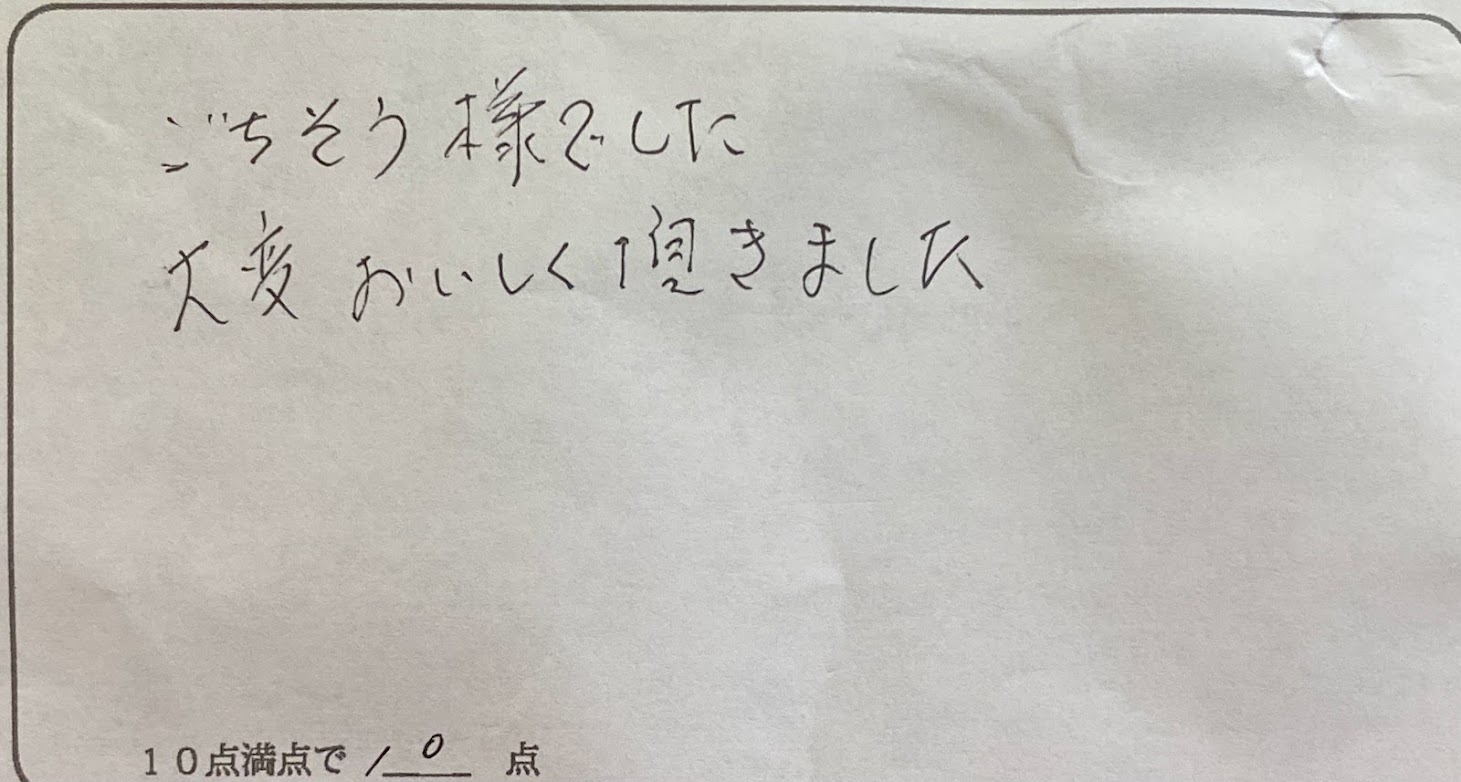 ごちそう様でした
大変おいしく頂きました
10点満点で 10 点